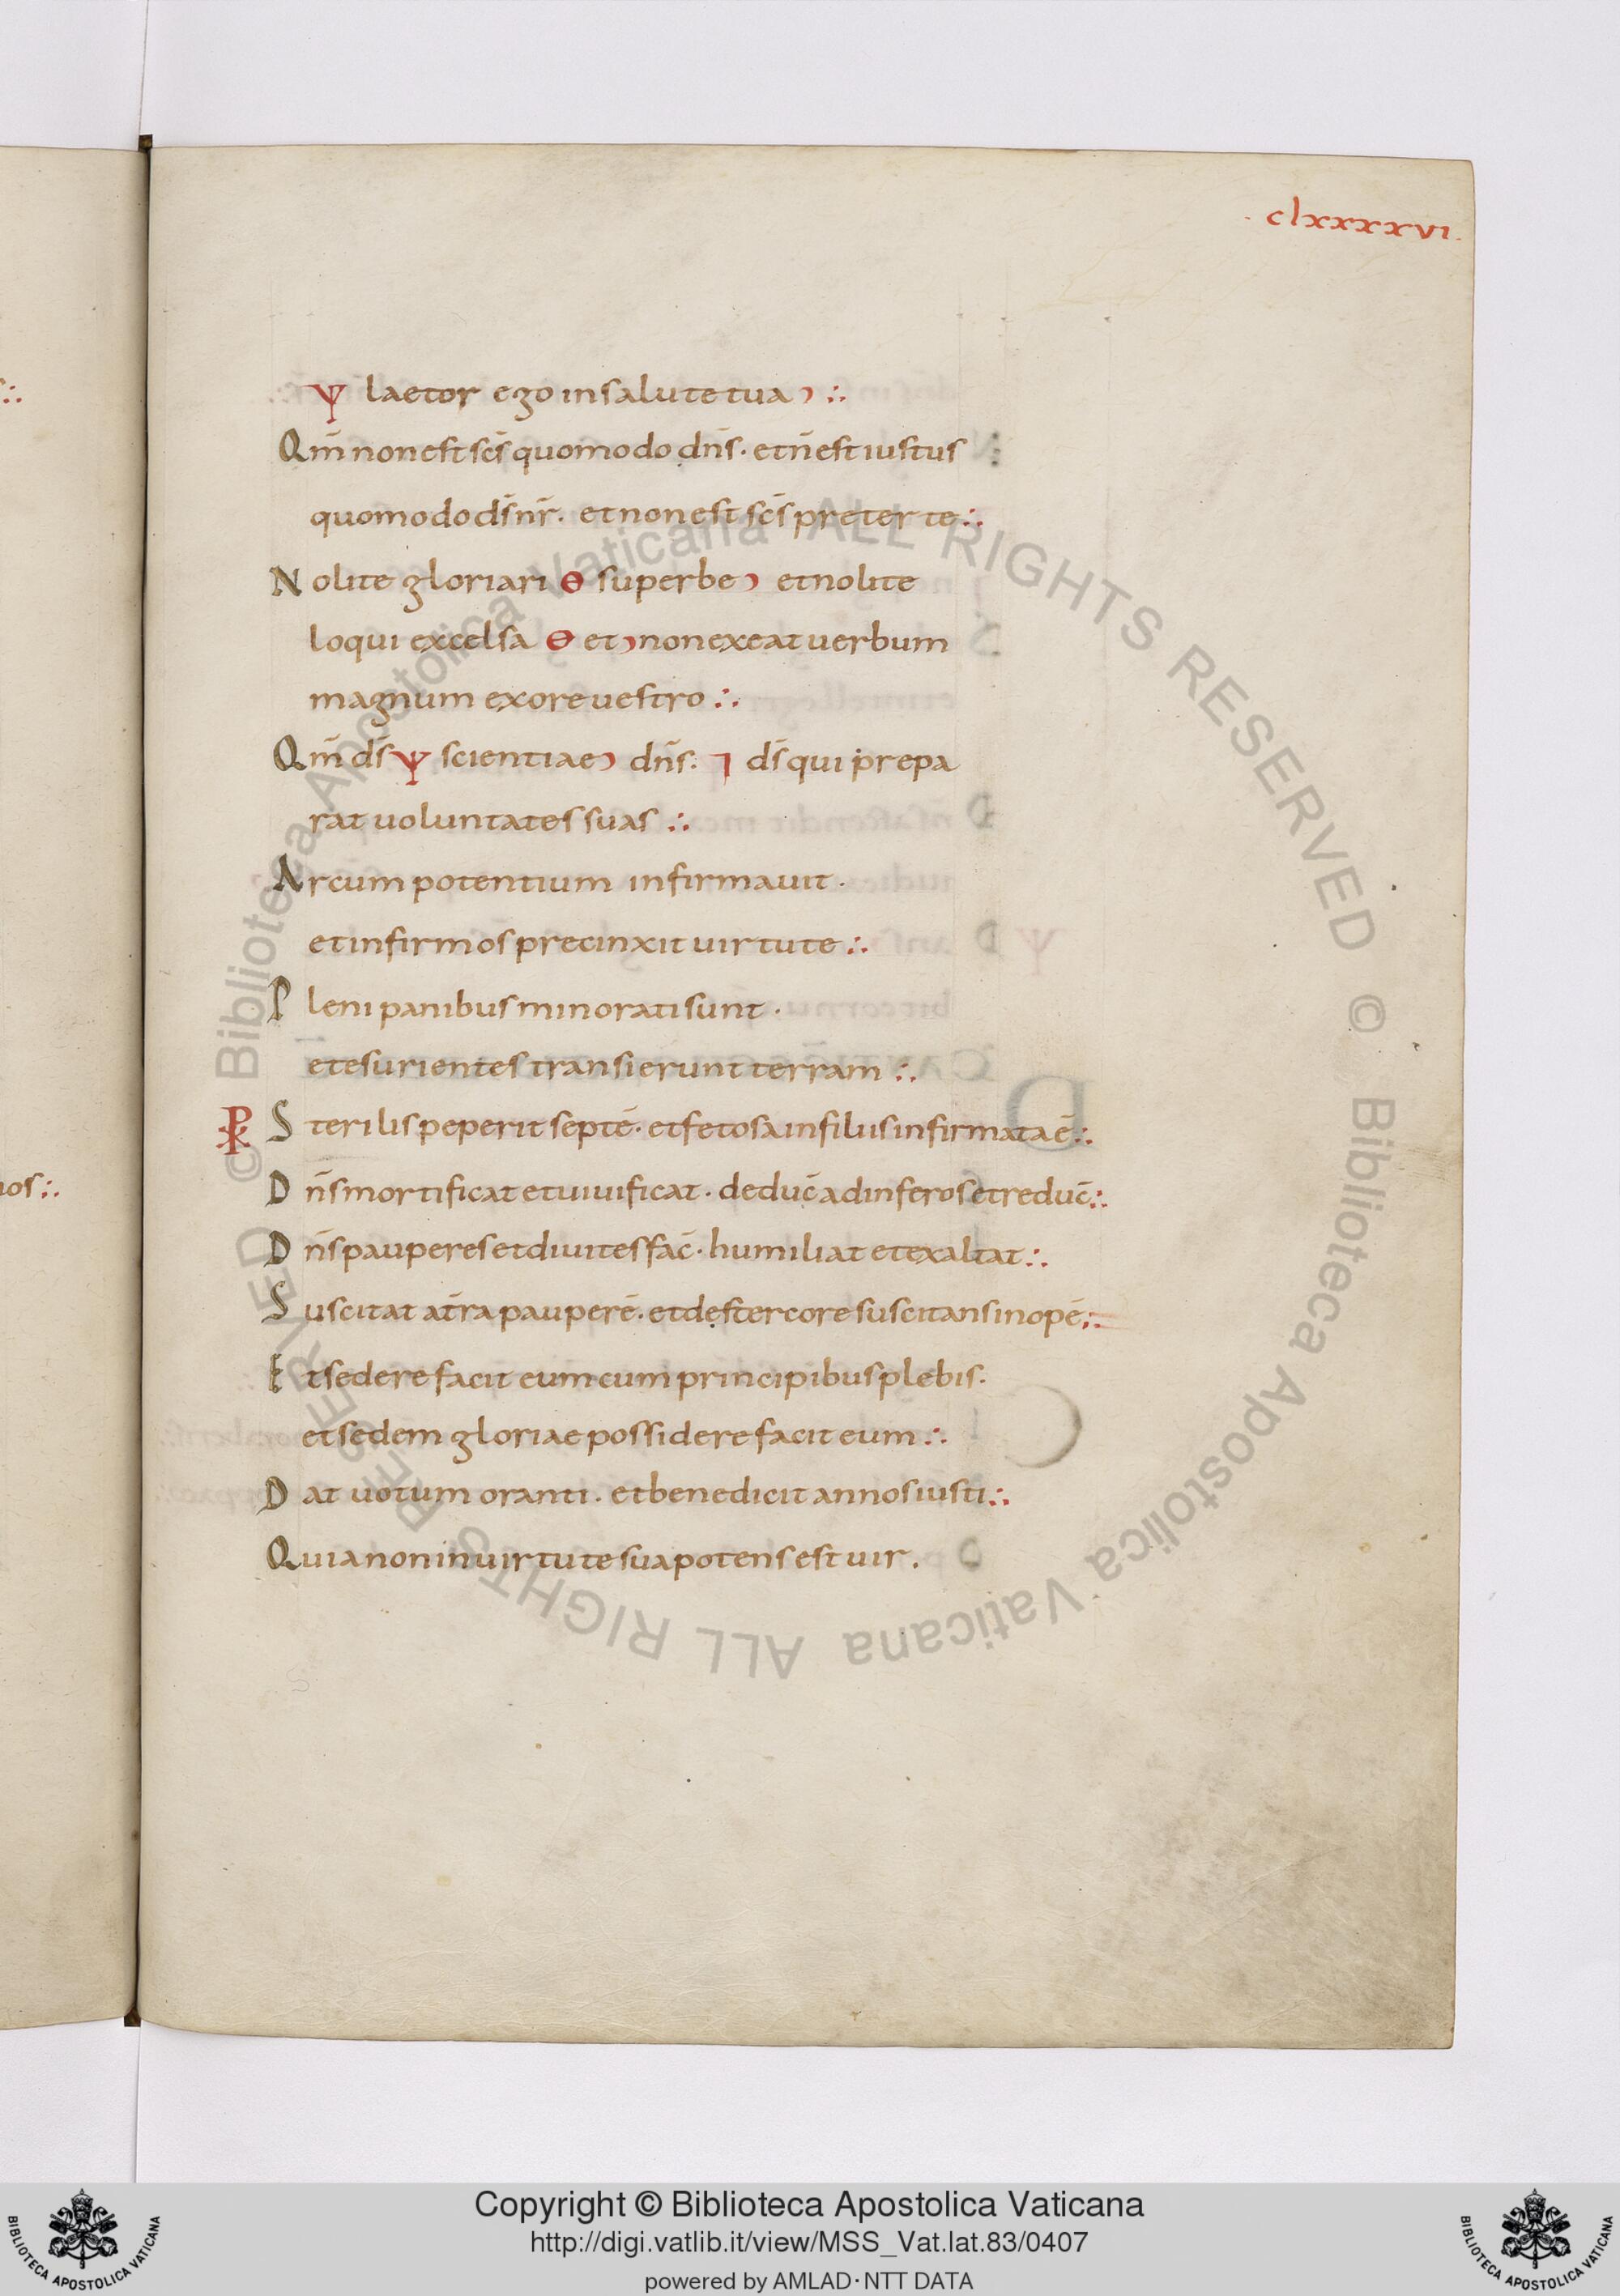 · clxxxxvı.
Ψ laetor ego in salute tua ɔ ∴
Qm̄ non est sc̄s quomodo dn̄s · et n̄ est iustus
quomodo ds̄ nr̄ · et non est sc̄s preter te ∴
Nolite gloriari Ɵ superbe ɔ et nolite
loqui excelsa Ɵ et ɔ non exeat uerbum
magnum ex ore uestro ∴
Qm̄ ds̄ Ψ scientiae ɔ dn̄s · ꓶ ds̄ qui prepa
rat uoluntates suas ∴
Arcum potentium infirmauit ·
et infirmos precinxit uirtute ∴
Pleni panibus minorati sunt ·
et esurientes transierunt terram ∴
⳩ Sterilis peperit septē · et fetosa in filiis infirmata ē ∴
Dn̄s mortificat et uiuificat · deduc̄ ad inferos et reduc̄ ∴
Dn̄s pauperes et diuites fac̄ · humiliat et exaltat ∴
Suscitat at̄ra pauperē · et de stercore suscitans inopē ∴
Et sedere facit eum cum principibus plebis ·
et sedem gloriae possidere facit eum ∴
Dat uotum oranti · et benedicit annos iusti ∴
Quia non in uirtute sua potens est uir .
os ∴
© Biblioteca Apostolica Vaticana ALL RIGHTS RESERVED © Biblioteca Apostolica Vaticana ALL RIGHTS RESERVED
Copyright © Biblioteca Apostolica Vaticana
http://digi.vatlib.it/view/MSS_Vat.lat.83/0407
powered by AMLAD·NTT DATA
BIBLIOTECA APOSTOLICA VATICANA
BIBLIOTECA APOSTOLICA VATICANA